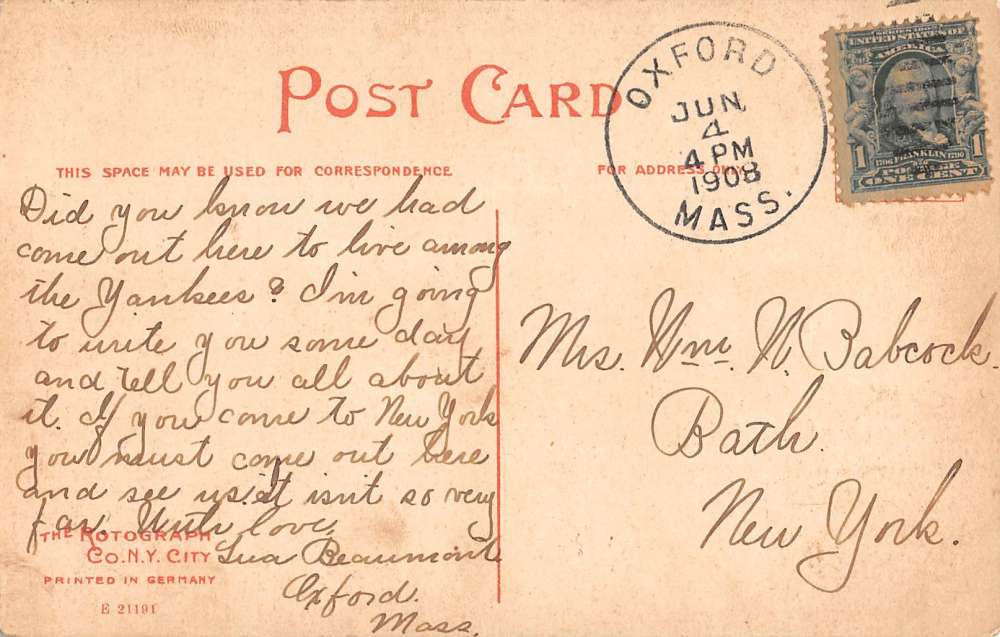 POST CARD
THIS SPACE MAY BE USED FOR CORRESPONDENCE
FOR ADDRESS ONLY
OXFORD
JUN
4
4 PM
1908
MASS.
SERIES 1902
UNITED STATES OF
AMERICA
1 1
1706 FRANKLIN 1790
POSTAGE
ONE CENT
Did you know we had
come out here to live among
the Yankees? I'm going
to write you some day
and tell you all about
it. If you come to New York
you must come out here
and see us. It isn't so very
far. With love
Beaumont
Oxford.
Mass.
Mrs. Wm. N. Babcock.
Bath.
New York.
THE ROTOGRAPH
CO. N.Y. CITY
PRINTED IN GERMANY
E 21191